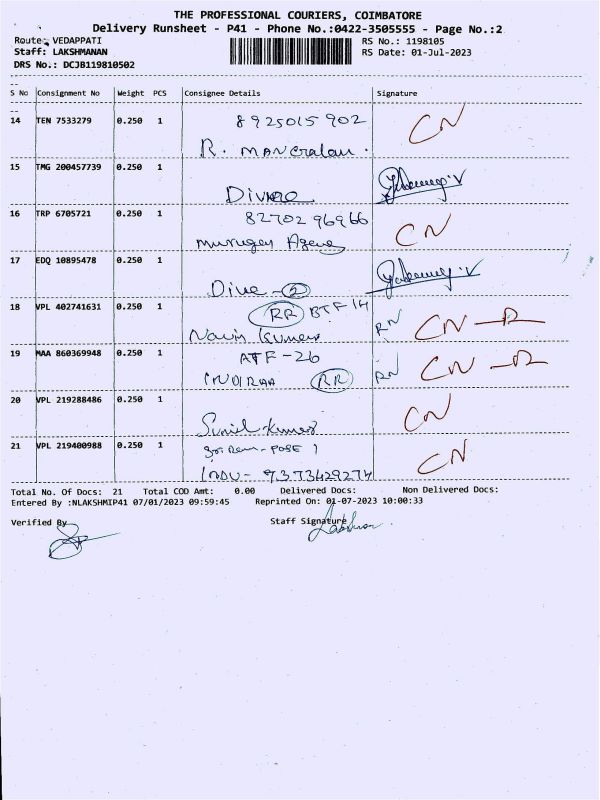 THE PROFESSIONAL COURIERS, COIMBATORE
Delivery Runsheet - P41 - Phone No.:0422-3505555 - Page No.:2
Route: VEDAPPATI
RS No.: 1198105
Staff: LAKSHMANAN
RS Date: 01-Jul-2023
DRS No.: DCJB119810502
S No Consignment No Weight PCS Consignee Details Signature
14 TEN 7533279 0.250 1 8925015902 CN
R.
15 TMG 200457739 0.250 1
16 TRP 6705721 0.250 1 8270296966 CN
Murugan
17 EDQ 10895478 0.250 1
18 VPL 402741631 0.250 1 RR BTF 14 RN CN
Navin Kumar
19 MAA 860369948 0.250 1 ATF-26 RN CN
INDIRAA RR
20 VPL 219288486 0.250 1 CN
Sunil Kumar
21 VPL 219400988 0.250 1 CN
INDU - 9373429274
Total No. Of Docs: 21 Total COD Amt: 0.00 Delivered Docs: Non Delivered Docs:
Entered By :NLAKSHMIP41 07/01/2023 09:59:45 Reprinted On: 01-07-2023 10:00:33
Verified By
Staff Signature